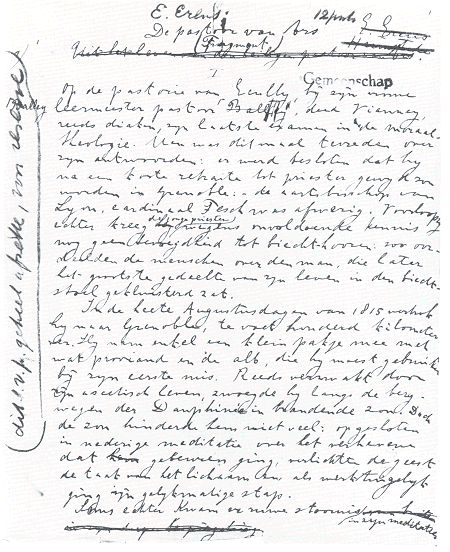 E. Erens
12 puls
E. Erens
De pastoor van Ars
(Fragment)
Uit het leven van den heiligen pastoor van Ars
I
Gemeenschap
Op de pastorie van Ecully, bij zijn vrome
leermeester pastoor Balley, deed Vianney,
reeds diaken, zijn laatste examen in de moraal-
theologie. Men was ditmaal tevreden over
zijn antwoorden: er werd besloten dat hij
na een korte retraite tot priester gewijd zou
worden in Grenoble: - de aartsbisschop van
Lyon, cardinaal Fesch was afwezig. Voorloopig
echter kreeg de jonge priester wegens onvoldoende kennis
nog geen bevoegdheid tot biechthooren: zoo oor-
deelden de menschen over den man, die later
het grootste gedeelte van zijn leven in den biecht-
stoel gekluisterd zat.
In de heete Augustusdagen van 1815 vertrok
hij naar Grenoble, te voet honderd kilometer
ver. Hij nam enkel een klein pakje mee met
wat proviand en de alb, die hij moest gebruiken
bij zijn eerste mis. Reeds vermakt door
zijn ascetisch leven, zwoegde hij langs de berg-
wegen der Dauphiné in brandende zon. Doch
de zon hinderde hem niet veel: opgesloten
in nederige meditatie over het verhevene
dat hem gebeuren ging, verlichtte de geest
de taak van het lichaam en, als werktuigelijk
ging zijn gelijkmatige stap.
Soms echter kwam er nieuwe stoornis
in zijn meditaties
Balley
dit s.v.p. geheel aparte, voor